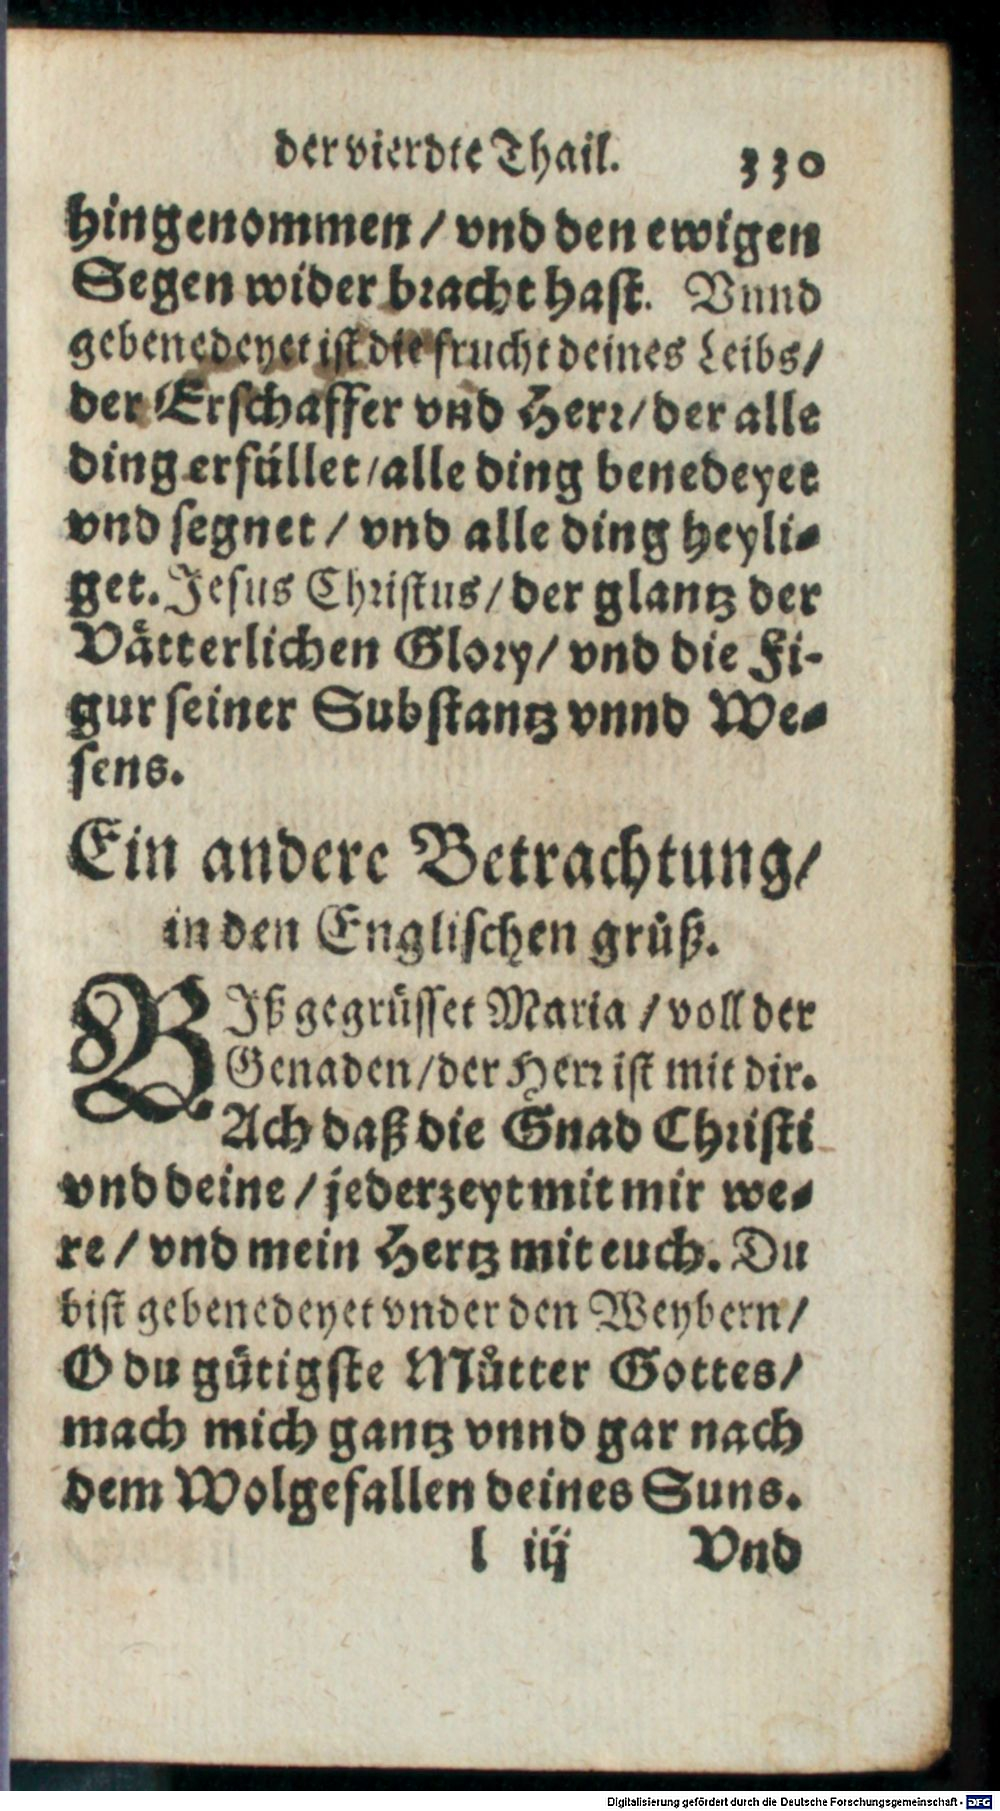 der vierdte Thail. 330
hingenommen / vnd den ewigen
Segen wider bracht hast. Vnnd
gebenedeyet ist die frucht deines Leibs/
der Erschaffer vnd Herr/ der alle
ding erfüllet/alle ding benedeyet
vnd segnet / vnd alle ding heyli-
get. Jesus Christus/ der glantz der
Vätterlichen Glory/ vnd die Fi-
gur seiner Substantz vnnd We-
sens.
Ein andere Betrachtung/
in den Englischen grůß.
BIß gegrüsset Maria / voll der
Genaden/der Herr ist mit dir.
Ach daß die Gnad Christi
vnd deine / jederzeyt mit mir we-
re / vnd mein Hertz mit euch. Du
bist gebenedeyet vnder den Weybern/
O du gütigste Můtter Gottes/
mach mich gantz vnnd gar nach
dem Wolgefallen deines Suns.
l iij Vnd
Digitalisierung gefördert durch die Deutsche Forschungsgemeinschaft - DFG